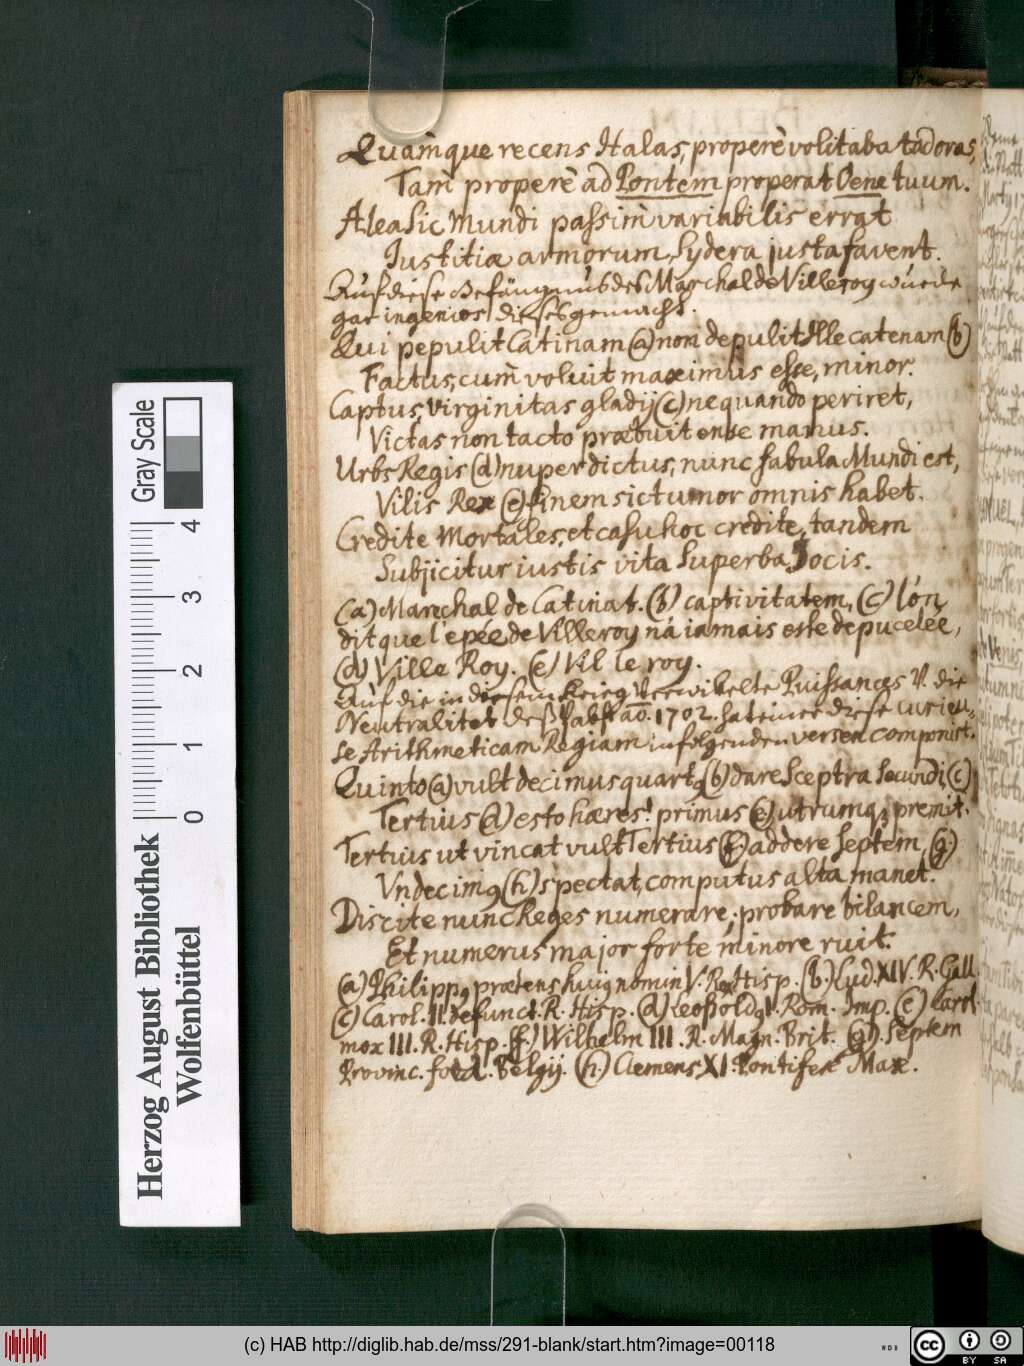 Quàmque recens Italas, properè volitabat ad oras,
Tam properè ad Pontem properat Oene tuum.
Alea sic Mundi passim variabilis errat
Iustitiæ armorum, Sydera justa favent.
Auf diese Gefängnüs des Marchal de Villeroy wurde
gar ingenios dieses gemacht.
Qui pepulit Catinam (a) non depulit Ille catenam (b)
Factus, cum voluit maximus esse, minor.
Captus, virginitas gladij (c) ne quando periret,
Victas non tacto præbuit ense manus.
Urbs Regis (d) nuper dictus, nunc fabula Mundi est,
Vilis Rex (e) finem sic tumor omnis habet.
Credite Mortales, et casu hoc credite, tandem
Subjicitur iustis vita Superba Jocis.
(a) Marechal de Catinat. (b) captivitatem, (c) l'on
dit que l'epée de Villeroy n'a iamais esté depucelée,
(d) Ville Roy. (e) Vil le roy.
Auf die in diesem Krieg verwikelte Puissances V. die
Neutralitet deß Pabst aõ. 1702. hat einer diese curieu-
se Arithmeticam Regiam in folgenden versen componirt.
Quinto (a) vult decimus quartq (b) dare Sceptra Secundi, (c)
Tertius (d) esto hæres! primus (e) utrumq; premit.
Tertius ut vincat vult Tertius (f) addere Septem, (g)
Vndecimq (h) spectat, computus alta manet.
Discite nunc Reges numerare, probare bilancem,
Et numerus major forte minore ruit.
(a) Philippq prætens hujq nomin V. Rex Hisp. (b) Lud. XIV. R. Gall
(c) Carol. II. defunct. R. Hisp. (d) Leopoldq I. Rom. Imp. (e) Carol
mox III. R. Hisp. (f) Wilhelm III. R. Magn. Brit. (g) Septem
Provinc. foed. Belgij. (h) Clemens XI. Pontifex Max.
Gray Scale
0 1 2 3 4
Herzog August Bibliothek
Wolfenbüttel
(c) HAB http://diglib.hab.de/mss/291-blank/start.htm?image=00118
WDB
cc BY SA